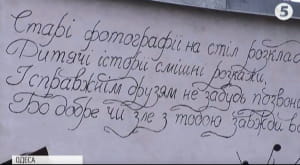 5
Старі фотографії на стіл розклад
Дитячі історії смішні розкажи,
І справжнім друзям не забудь позвони
Бо добре чи зле з тобою завжди во
ОДЕСА